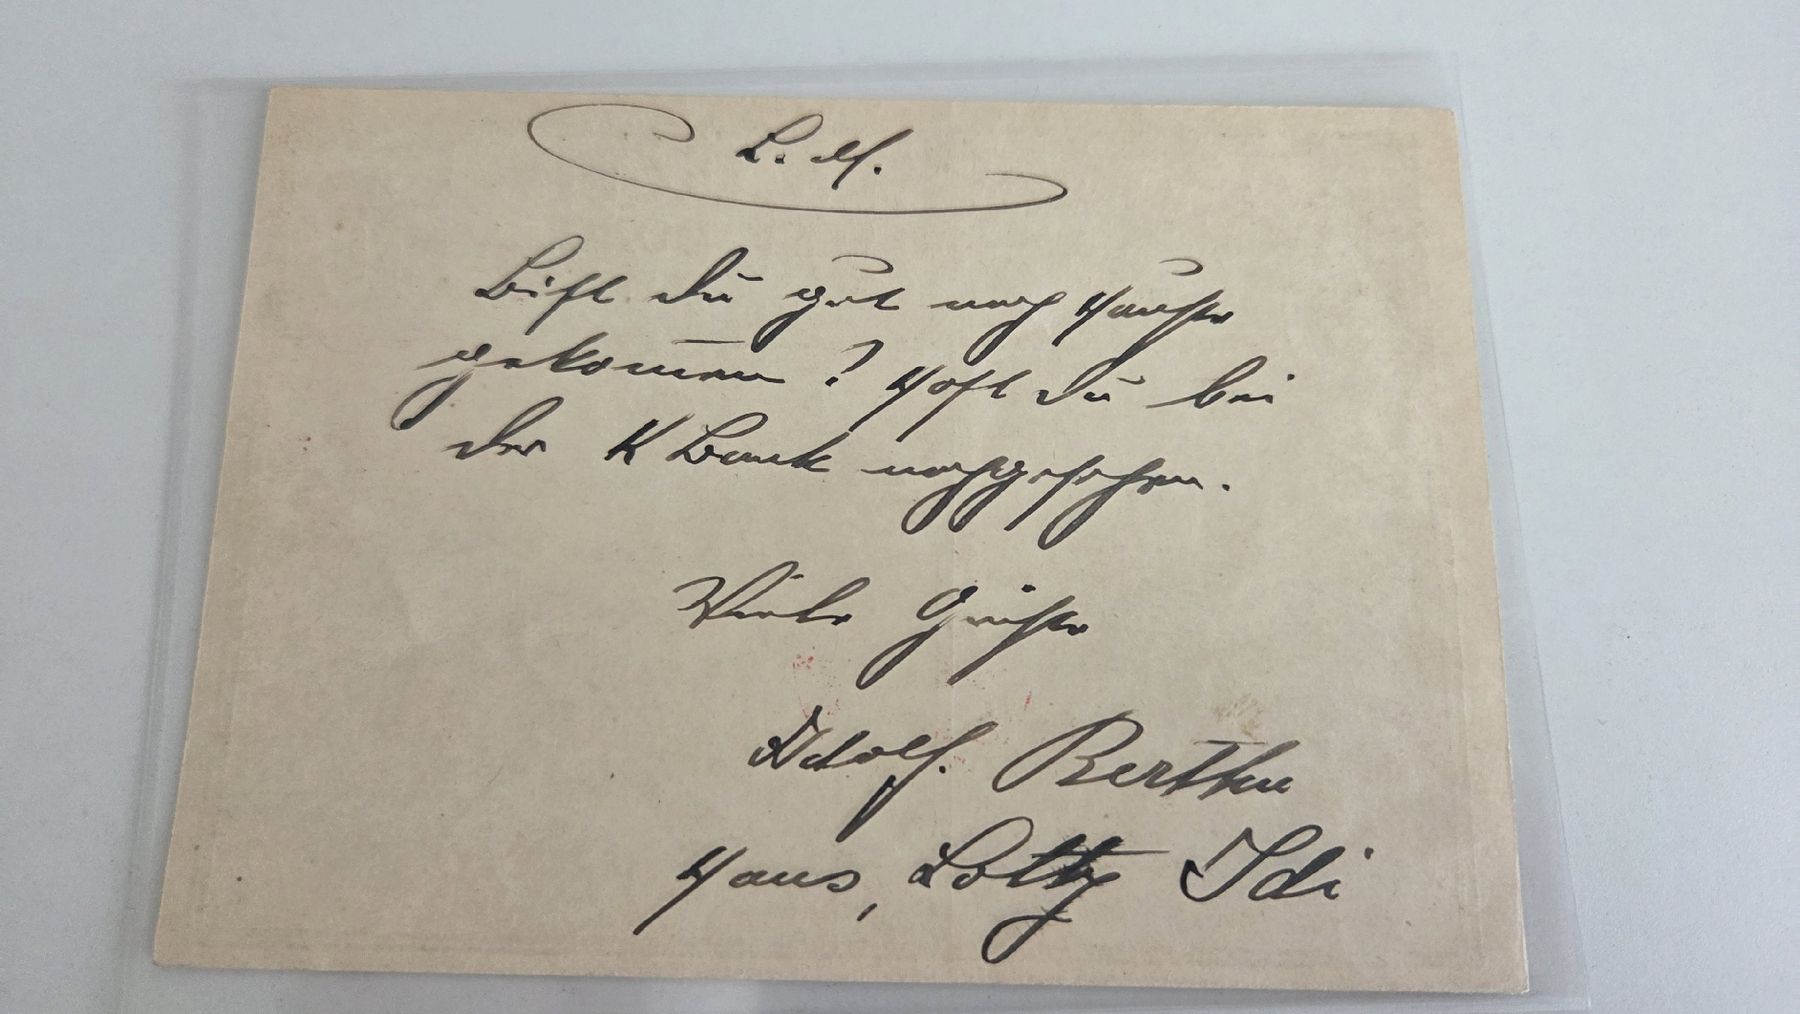 L. M.
Bist Du gut nach Hauße
gekommen? Hast Du bei
der K Bank nachgesehen.
Viele Grüße
Adolf. Bertha
Hans, Lotty Idi